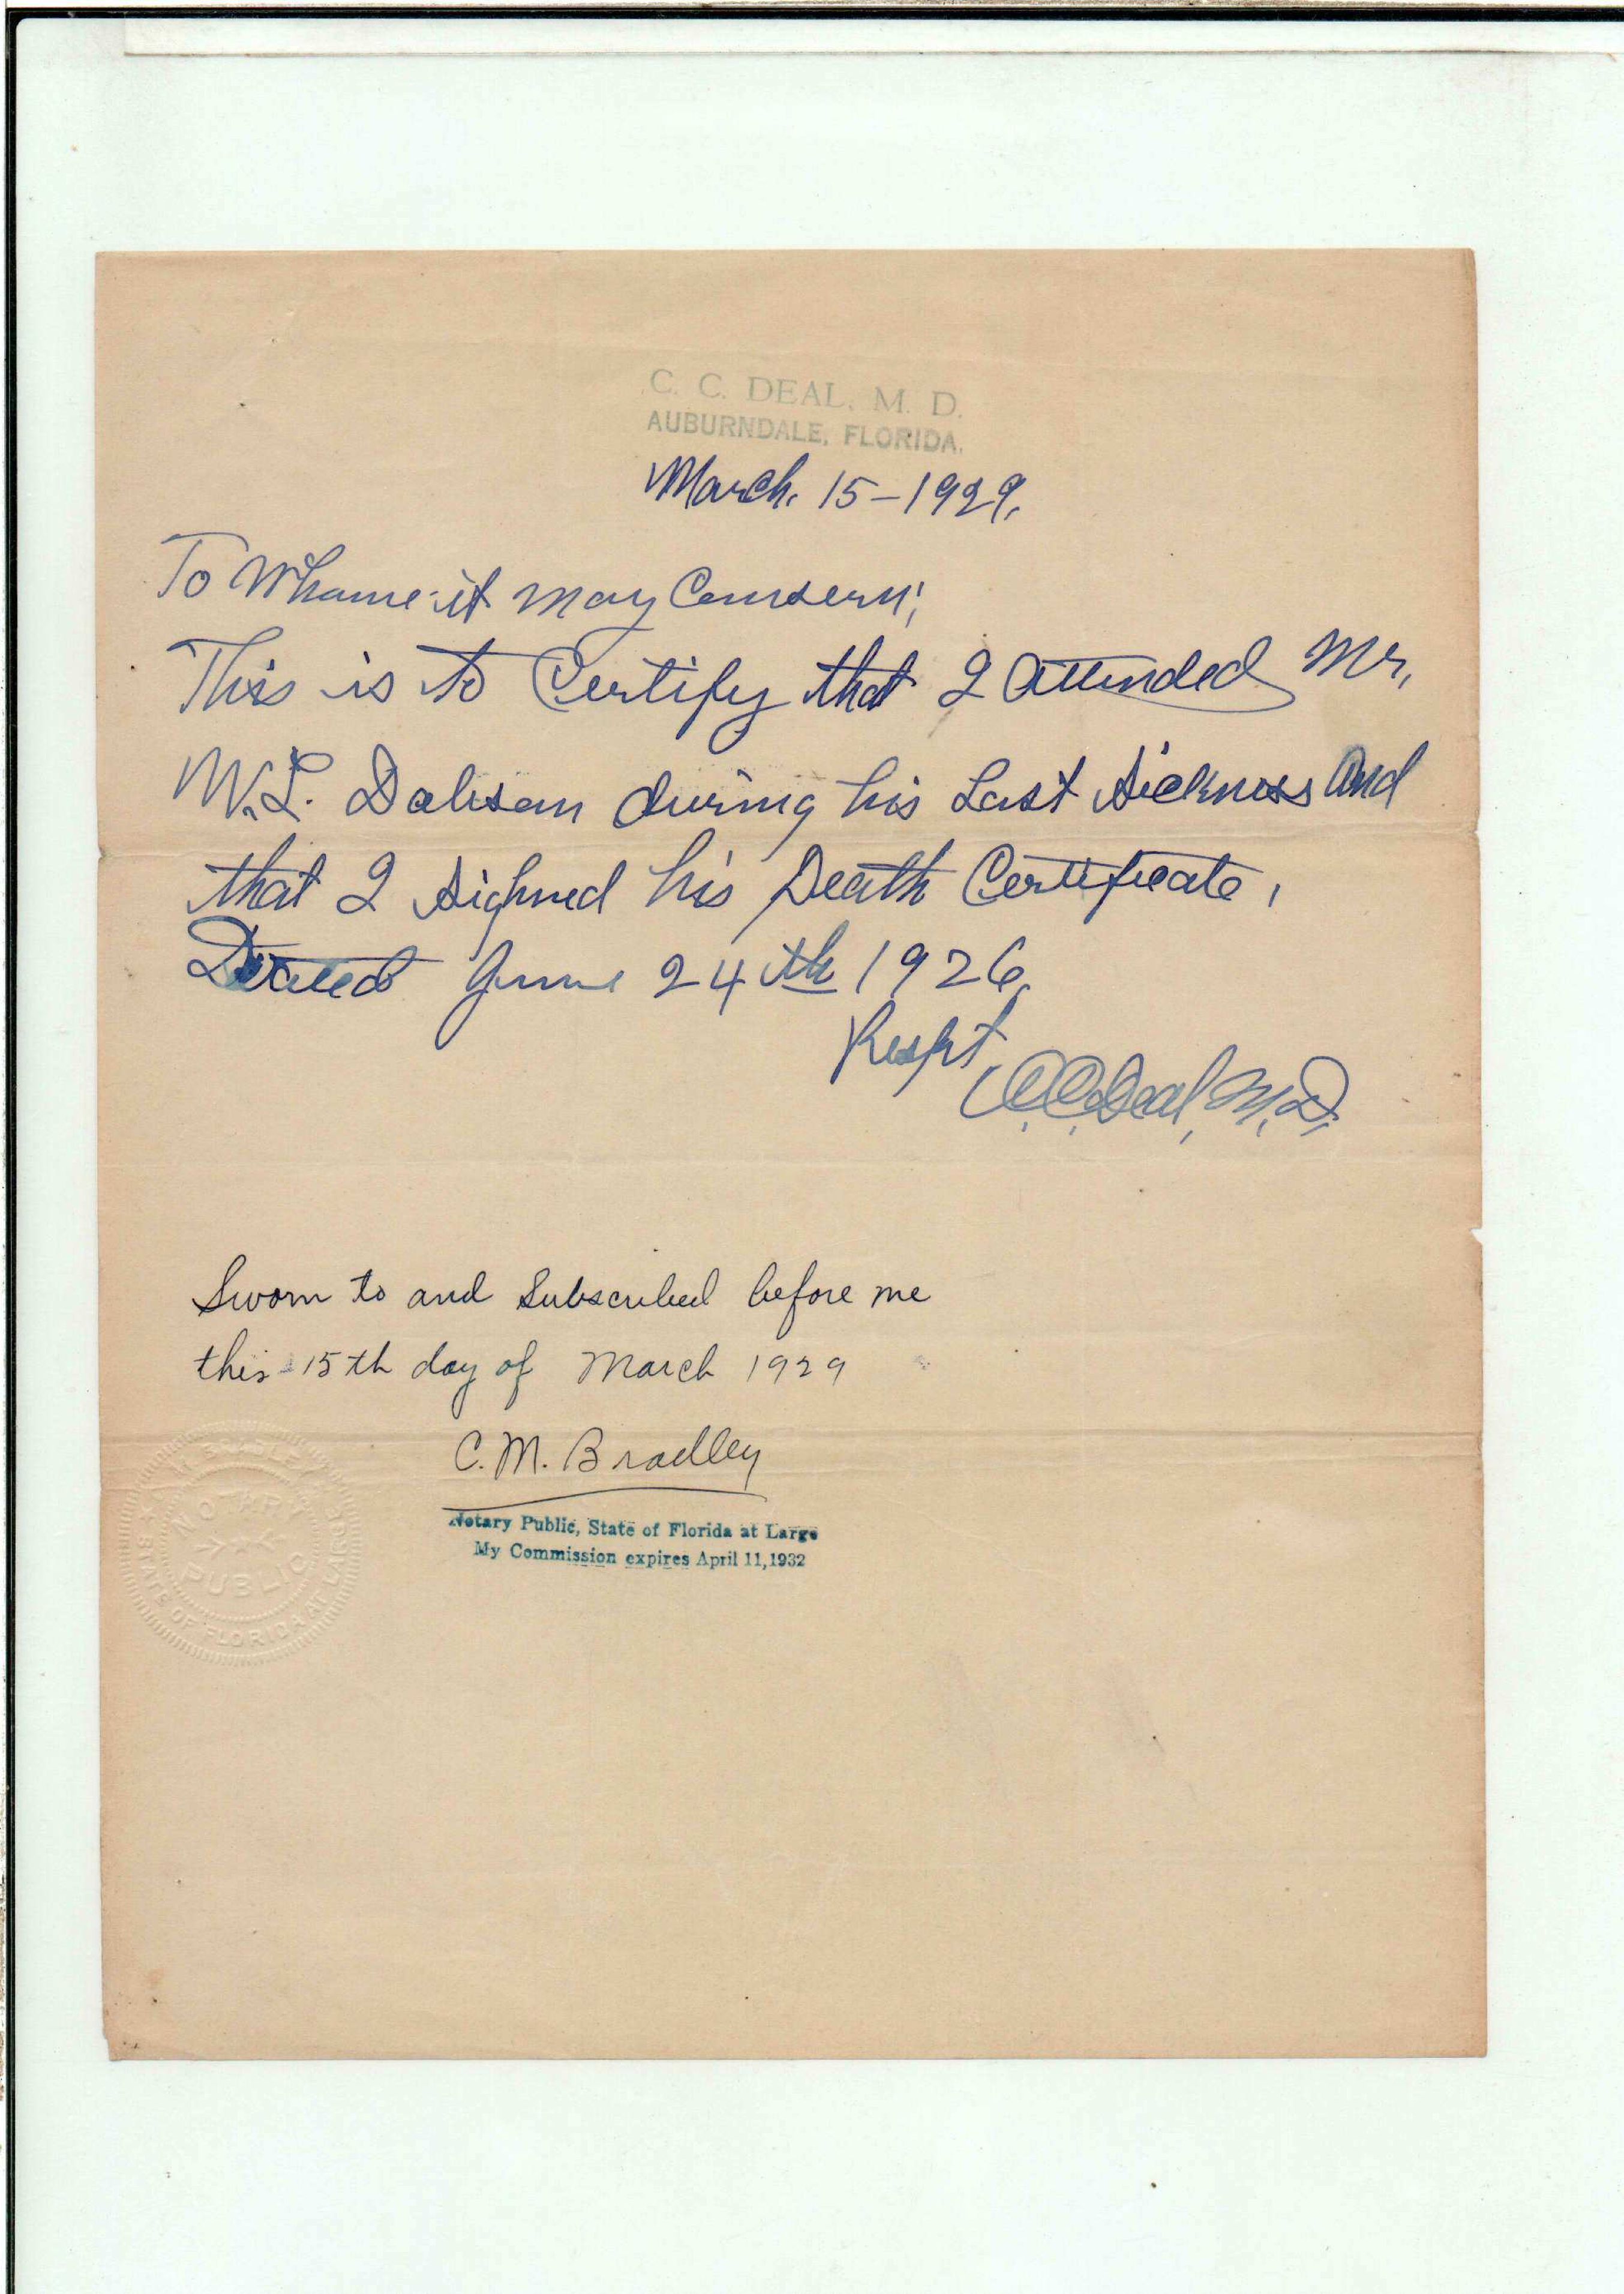 C. C. DEAL, M. D.
AUBURNDALE, FLORIDA.
March. 15-1929.
To Whome it may Consern;
This is to Certify that I attended Mr,
W.L. Dobson during his Last Sickness and
that I Signed his Death Certificate,
Dated June 24th 1926.
Respt,
C.C. Deal, M.D.
Sworn to and Subscribed before me
this 15th day of March 1929
C.M. Bradley
Notary Public, State of Florida at Large
My Commission expires April 11, 1932
BRADLEY
NOTARY
PUBLIC
STATE OF FLORIDA AT LARGE